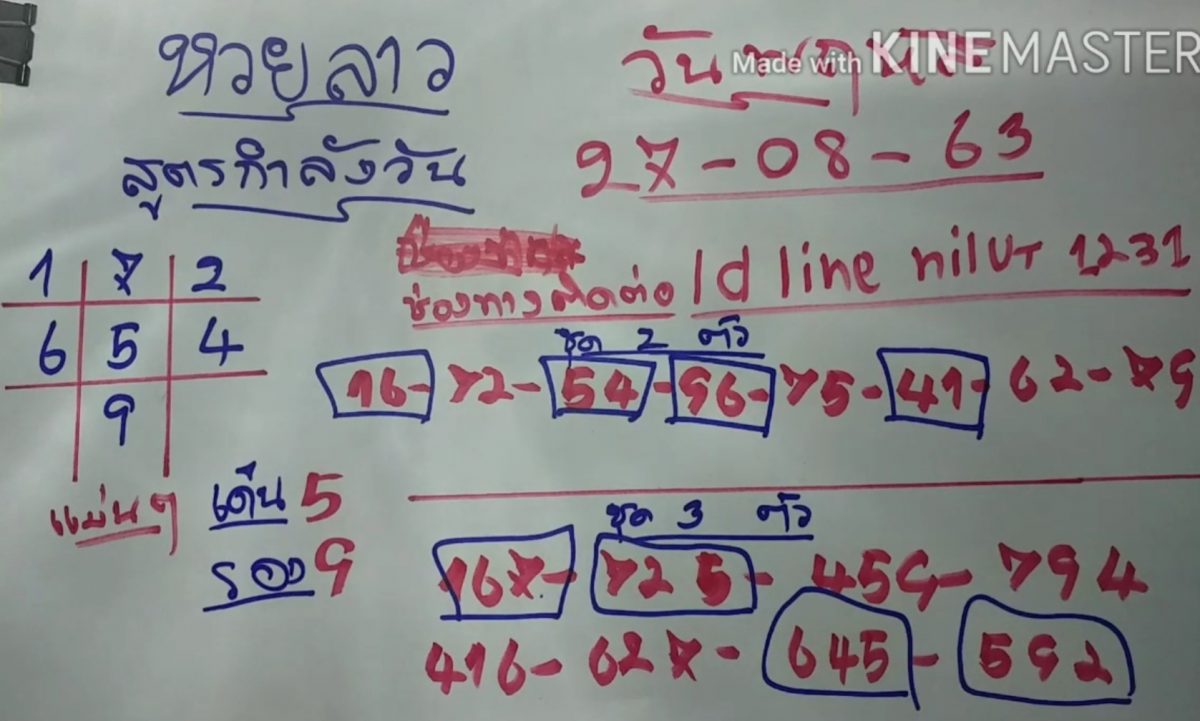 หวยลาว
วัน
Made with KINEMASTER
สูตรกำลังวัน
27-08-63
1 7 2
6 5 4
9
ช่องทางติดต่อ Id line nilut 1231
ชุด 2 ตัว
16-72-54-96-75-41-62-79
แม่นๆ
เด่น 5
รอง 9
ชุด 3 ตัว
167-725-459-794
416-627-645-592